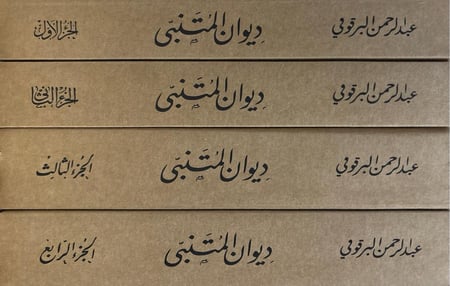 عبد الرحمن البرقوقي ديوان المتنبي الجزء الأول
عبد الرحمن البرقوقي ديوان المتنبي الجزء الثاني
عبد الرحمن البرقوقي ديوان المتنبي الجزء الثالث
عبد الرحمن البرقوقي ديوان المتنبي الجزء الرابع